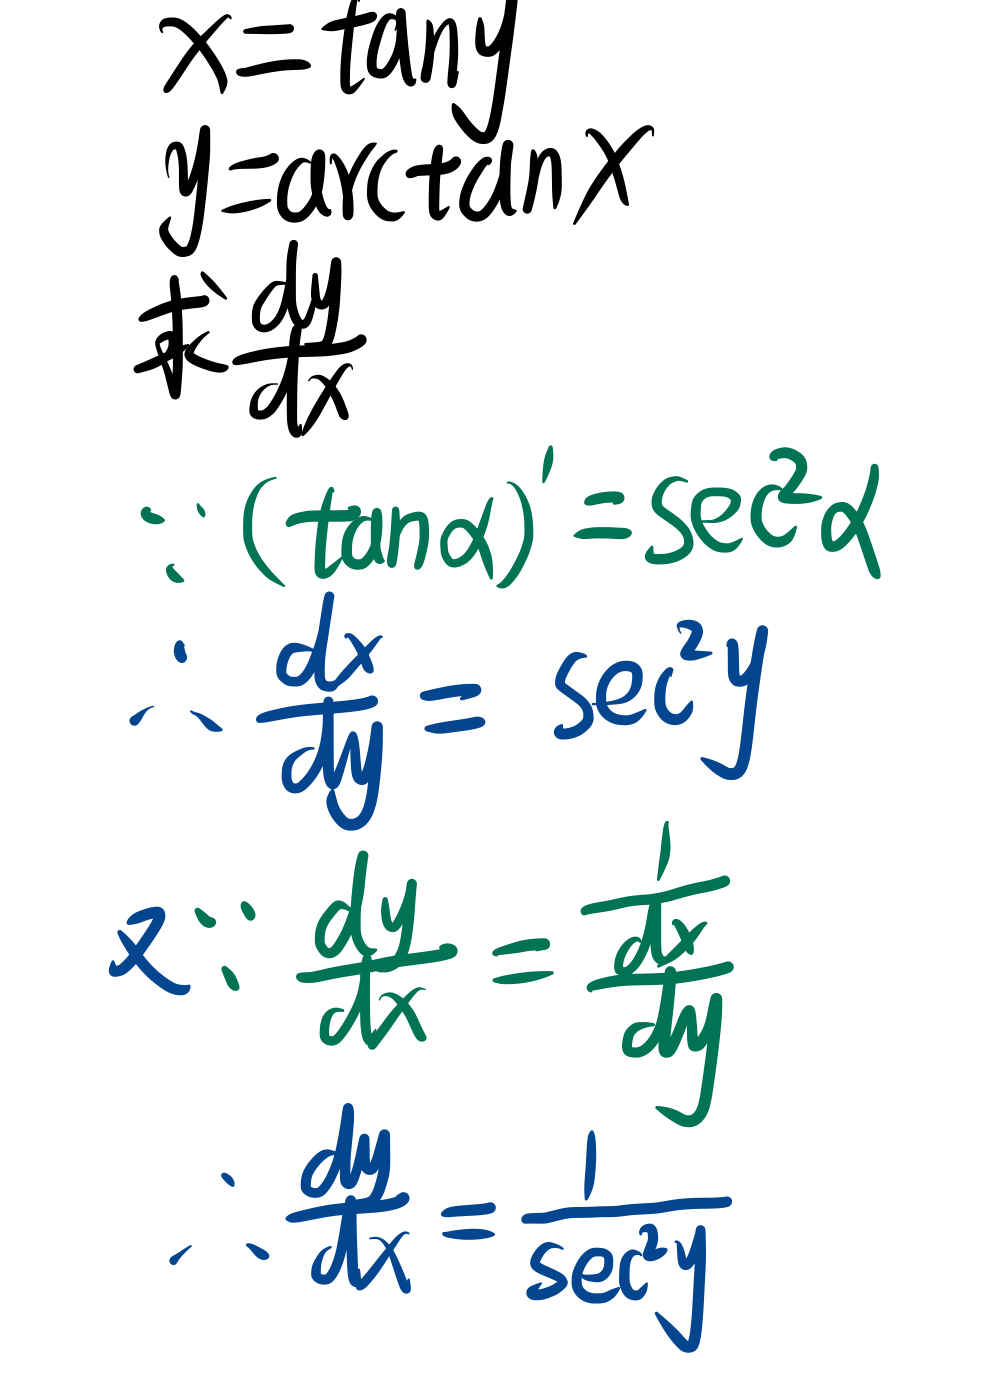 x=tany
y=arctanx
求dy/dx
∵(tanα)'=sec²α
∴dx/dy=sec²y
又∵dy/dx=1/(dx/dy)
∴dy/dx=1/sec²y